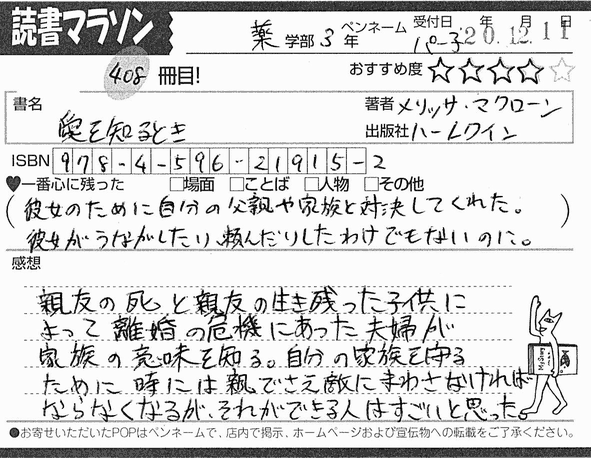 読書マラソン
薬 学部 3 年
ペンネーム パー子
受付日 年 月 日
'20.12.11
408 冊目!
おすすめ度 ★★★★☆
書名 愛を知るとき
著者 メリッサ・マクローン
出版社 ハーレクイン
ISBN 978-4-596-21915-2
♥一番心に残った □場面 □ことば □人物 □その他
(彼女のために自分の父親や家族と対決してくれた。
彼女がうながしたり、頼んだりしたわけでもないのに。)
感想
親友の死と親友の生き残った子供に
よって離婚の危機にあった夫婦が
家族の意味を知る。自分の家族を守る
ために時には親でさえ敵にまわさなければ
ならなくなるが、それができる人はすごいと思った。
●お寄せいただいたPOPはペンネームで、店内で掲示、ホームページおよび宣伝物への転載をご了承ください。